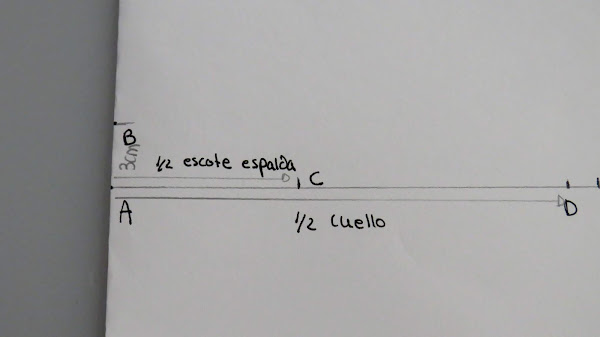 B
3cm
1/2 escote espalda
C
A
1/2 Cuello
D